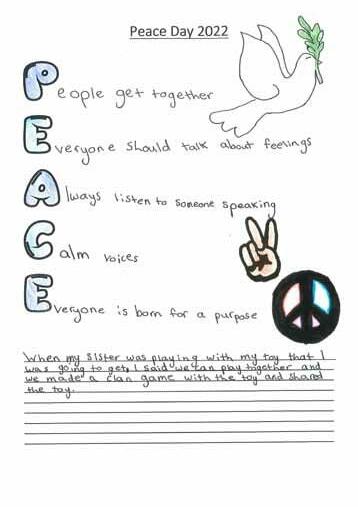 Peace Day 2022
People get together
Everyone should talk about feelings
Always listen to someone speaking
Calm voices
Everyone is born for a purpose
When my sister was playing with my toy that I
was going to get, I said we can play together and
we made a clan game with the toy and shared
the toy.